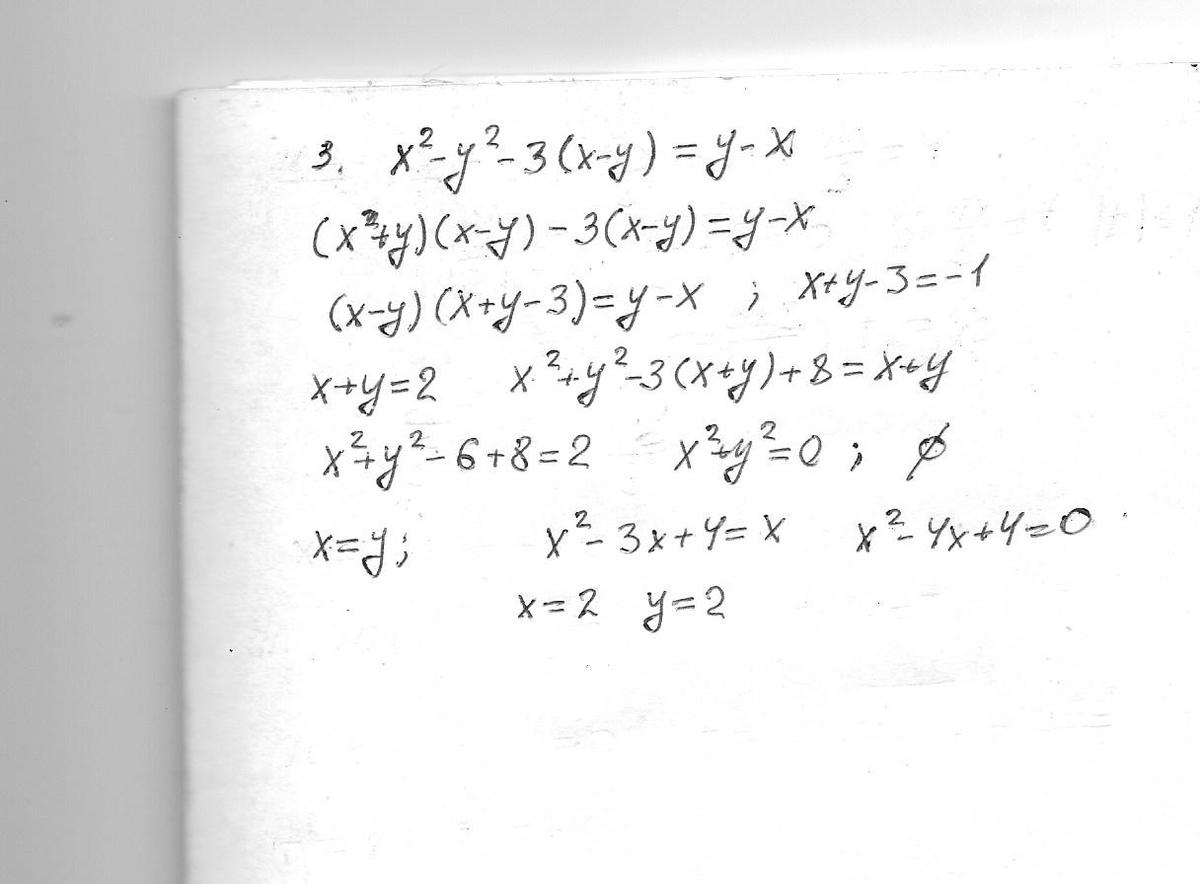 3. x²-y²-3(x-y)=y-x
(x²+y)(x-y)-3(x-y)=y-x
(x-y)(x+y-3)=y-x ; x+y-3=-1
x+y=2 x²+y²-3(x+y)+8=x+y
x²+y²-6+8=2 x²+y²=0 ; ∅
x=y; x²-3x+4=x x²-4x+4=0
x=2 y=2